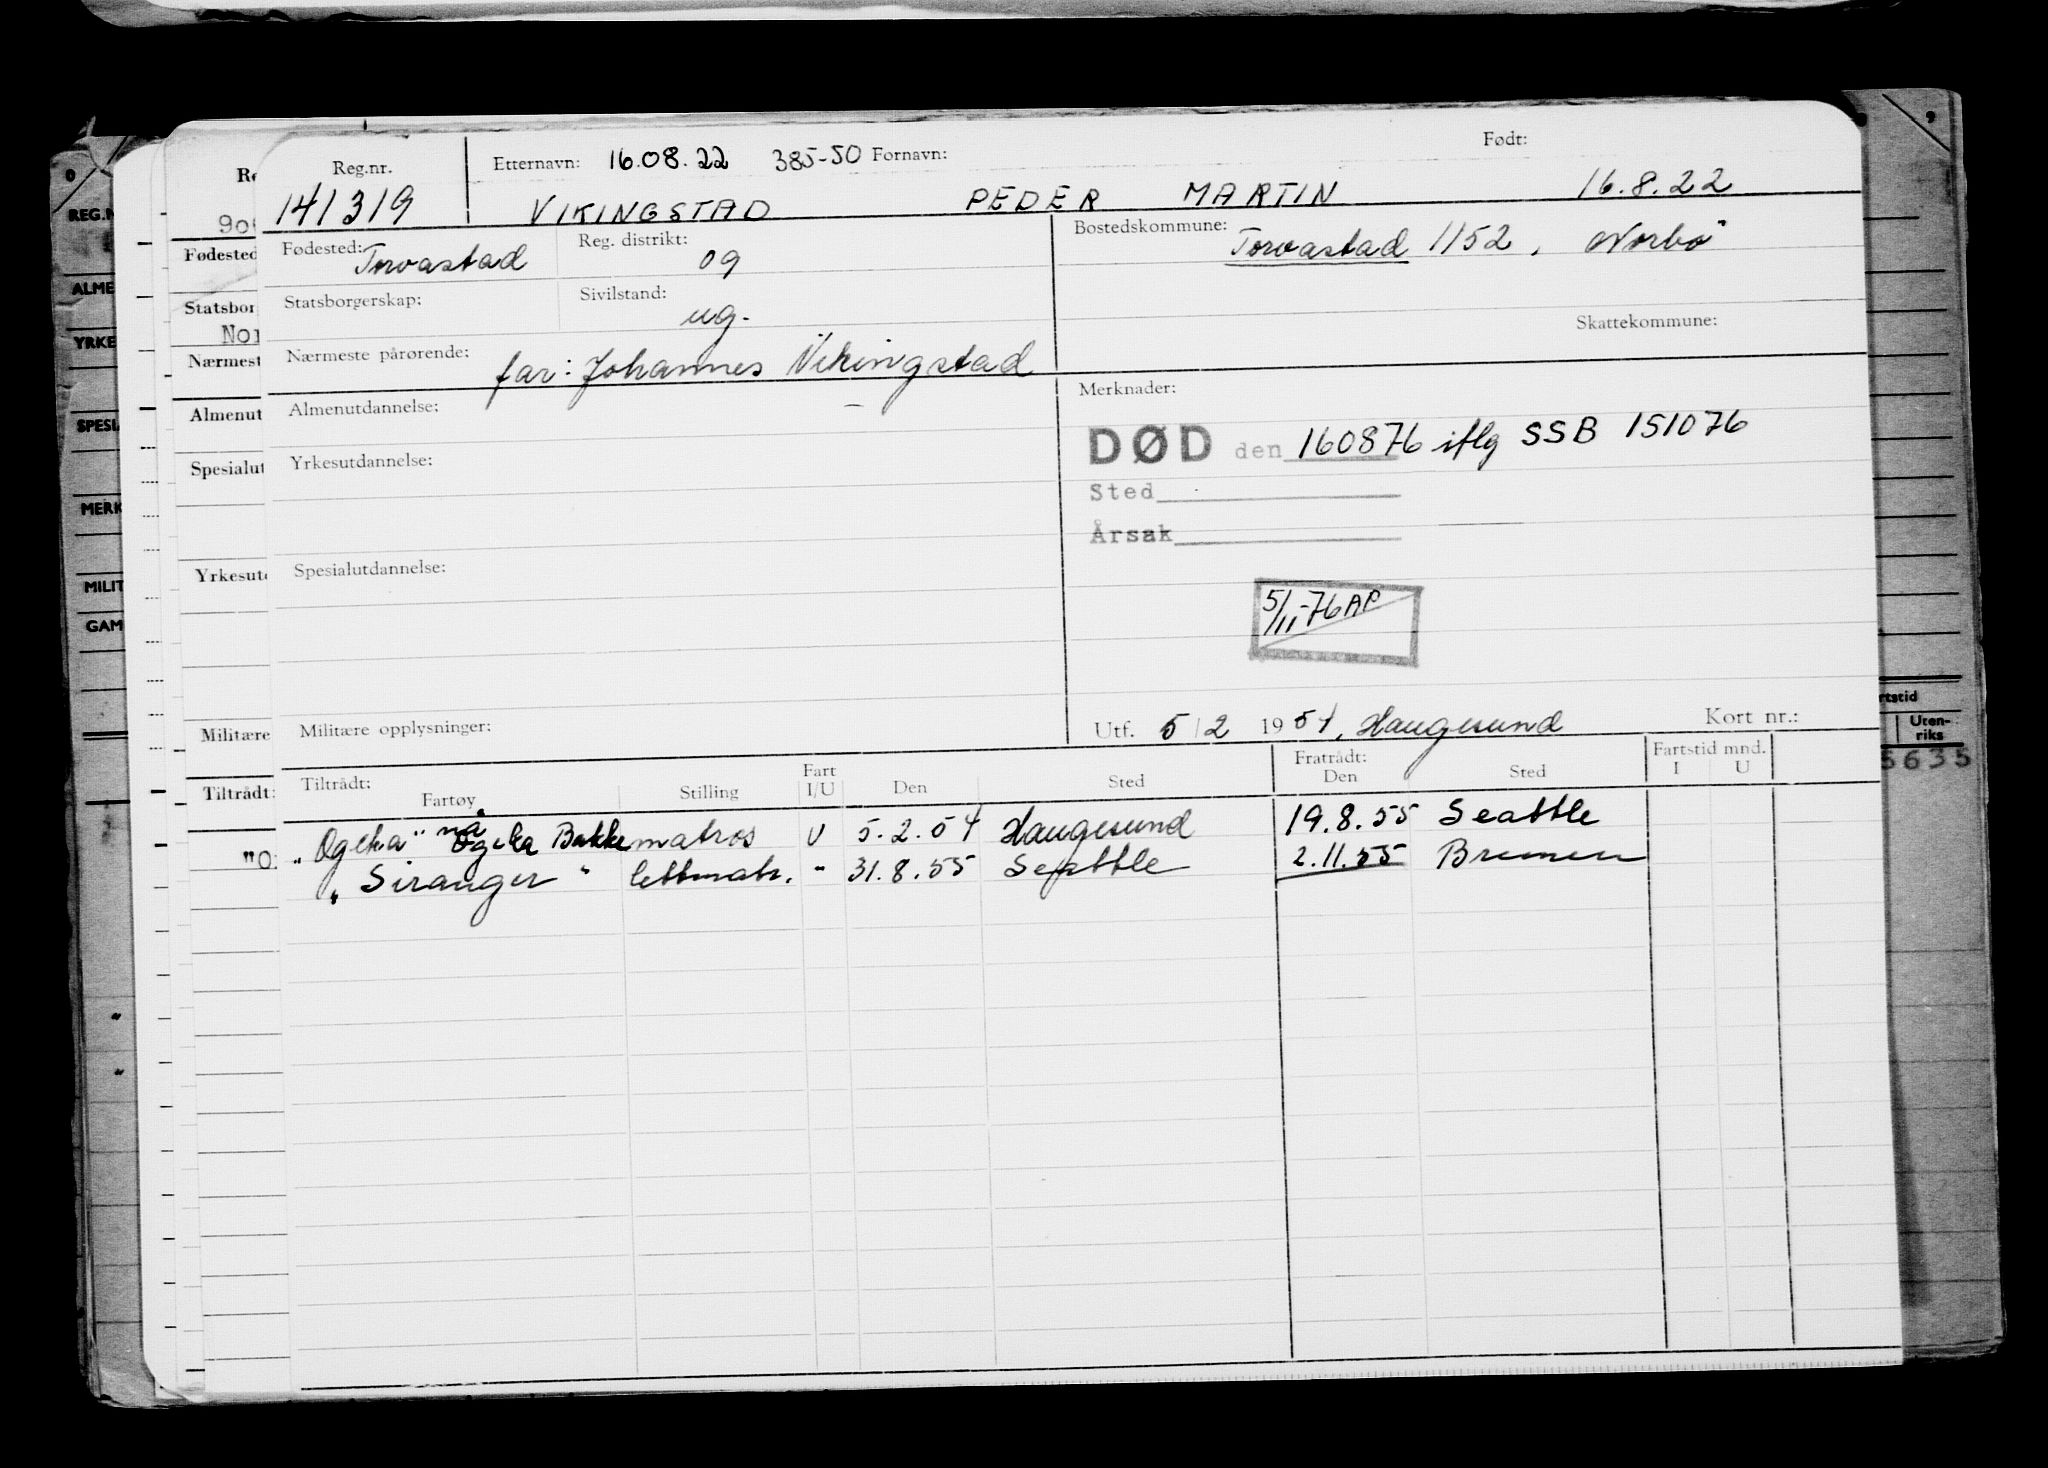 Reg.nr. Etternavn: 16.08.22 385-50 Fornavn: Født:
141319 VIKINGSTAD PEDER MARTIN 16.8.22
Fødested: Torvastad Reg. distrikt: 09 Bostedskommune: Torvastad 1152, Norbø
Statsborgerskap: Sivilstand: ug. Skattekommune:
Nærmeste pårørende: far: Johannes Vikingstad
Almenutdannelse: Merknader:
DØD den 160876 iflg SSB 151076
Yrkesutdannelse:
Sted
Årsak
Spesialutdannelse:
5/11-76 AP
Militære opplysninger: Utf. 5/2 1954, Haugesund Kort nr.:
Tiltrådt: Fartøy Stilling Fart I/U Den Sted Fratrådt: Den Sted Fartstid mnd. I U
"Ogeka" nå Ogeka Bakke matros U 5.2.54 Haugesund 19.8.55 Seattle
"Siranger" lettmatr. " 31.8.55 Seattle 2.11.55 Bremen
Re
90
Fødested
Statsbor
Nor
Nærmest
Almenut
Spesialut
Yrkesut
Militære
Tiltrådt:
"O
REG.N
ALME
YRKE
SPESI
MERK
MILIT
GAM
rtstid
Uten-
riks
5635